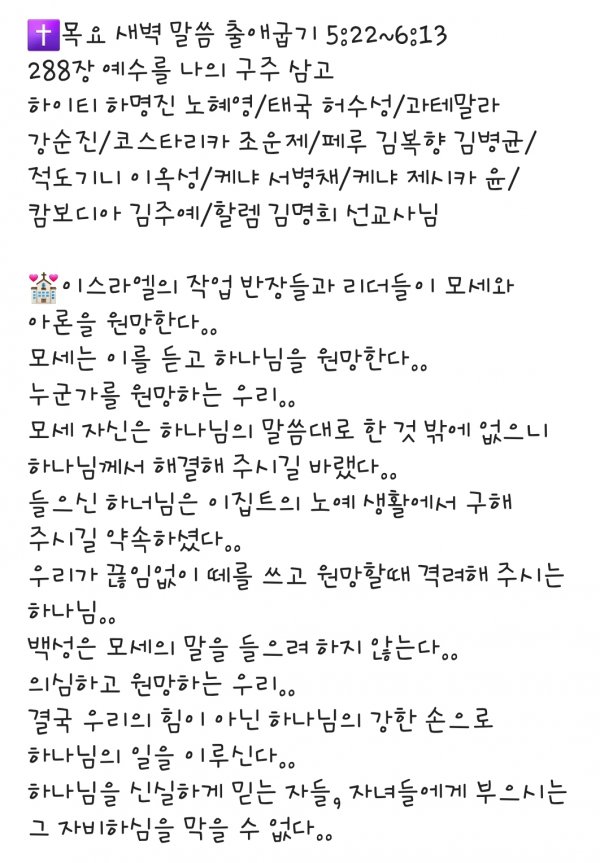 ✝️목요 새벽 말씀 출애굽기 5:22~6:13
288장 예수를 나의 구주 삼고
하이티 하명진 노혜영/태국 허수성/과테말라
강순진/코스타리카 조운제/페루 김복향 김병균/
적도기니 이옥성/케냐 서병채/케냐 제시카 윤/
캄보디아 김주예/할렘 김명희 선교사님
💒이스라엘의 작업 반장들과 리더들이 모세와
아론을 원망한다..
모세는 이를 듣고 하나님을 원망한다..
누군가를 원망하는 우리..
모세 자신은 하나님의 말씀대로 한 것 밖에 없으니
하나님께서 해결해 주시길 바랬다..
들으신 하너님은 이집트의 노예 생활에서 구해
주시길 약속하셨다..
우리가 끊임없이 떼를 쓰고 원망할때 격려해 주시는
하나님..
백성은 모세의 말을 들으려 하지 않는다..
의심하고 원망하는 우리..
결국 우리의 힘이 아닌 하나님의 강한 손으로
하나님의 일을 이루신다..
하나님을 신실하게 믿는 자들, 자녀들에게 부으시는
그 자비하심을 막을 수 없다..